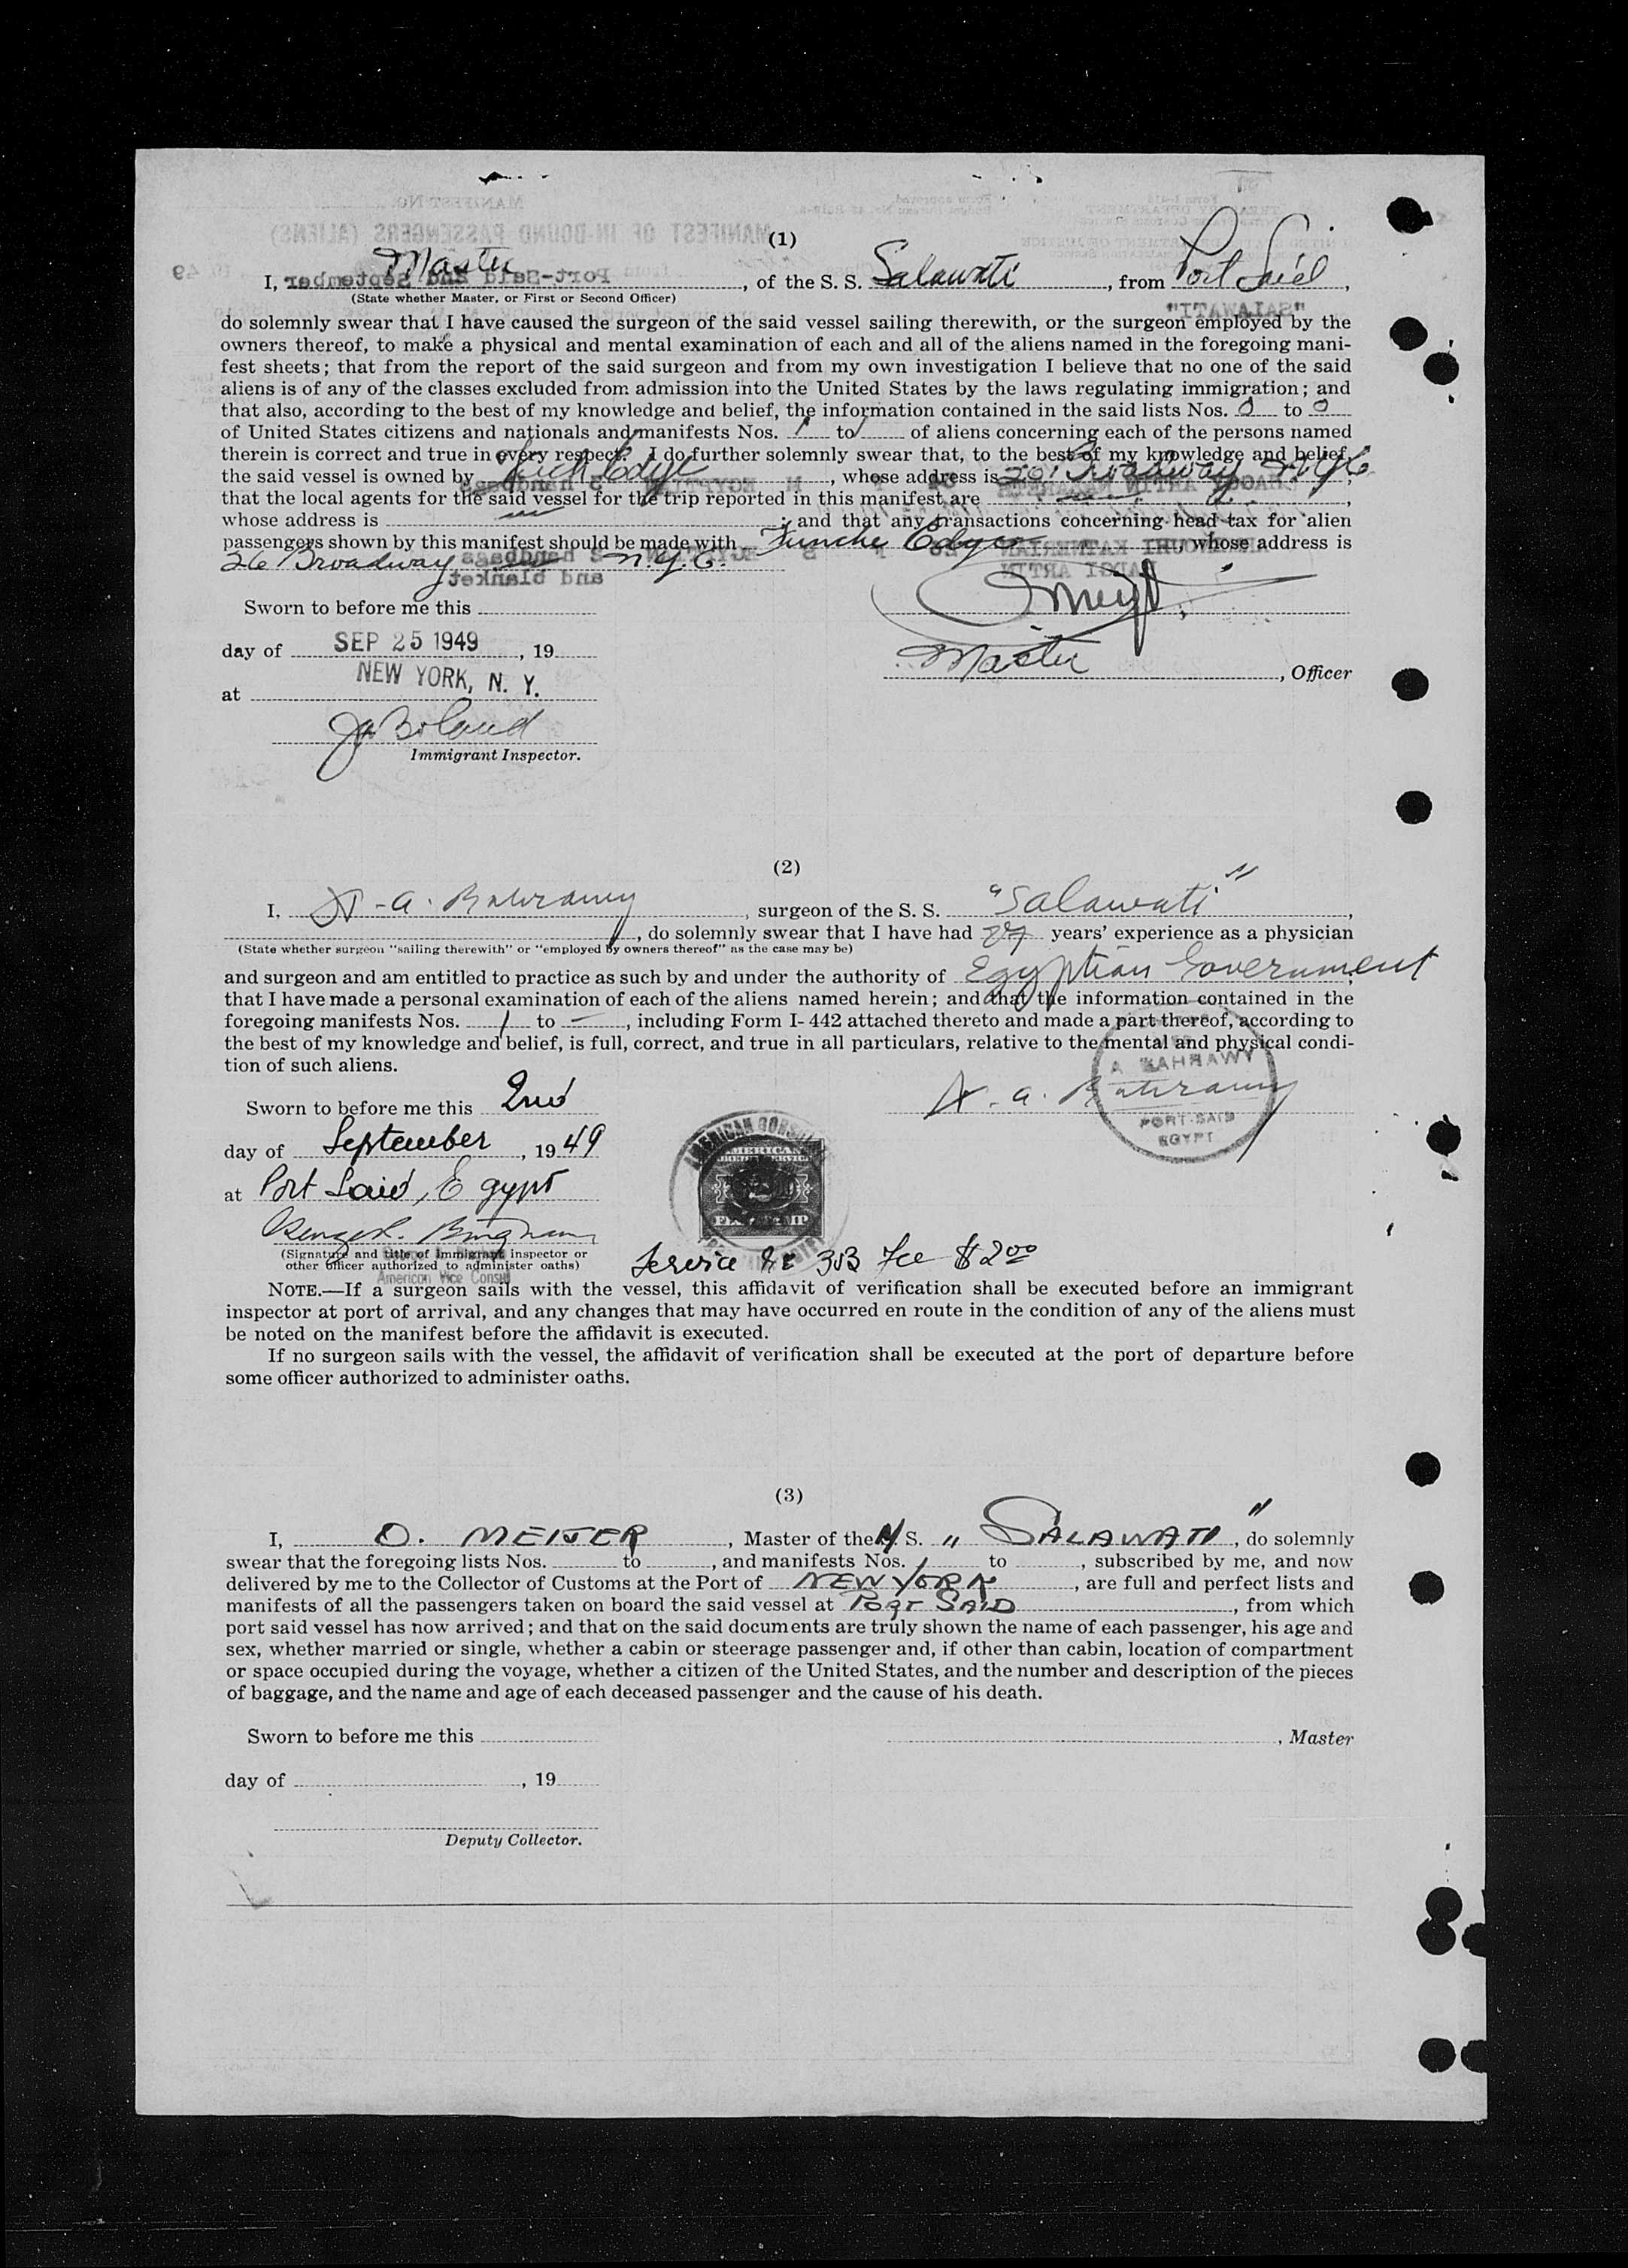 (1)
I, Master, of the S. S. Salawati, from Port Said,
(State whether Master, or First or Second Officer)
do solemnly swear that I have caused the surgeon of the said vessel sailing therewith, or the surgeon employed by the
owners thereof, to make a physical and mental examination of each and all of the aliens named in the foregoing mani-
fest sheets; that from the report of the said surgeon and from my own investigation I believe that no one of the said
aliens is of any of the classes excluded from admission into the United States by the laws regulating immigration; and
that also, according to the best of my knowledge and belief, the information contained in the said lists Nos. 0 to 0
of United States citizens and nationals and manifests Nos. 1 to 1 of aliens concerning each of the persons named
therein is correct and true in every respect. I do further solemnly swear that, to the best of my knowledge and belief,
the said vessel is owned by, whose address is Broadway N.Y.C.,
that the local agents for the said vessel for the trip reported in this manifest are,
whose address is; and that any transactions concerning head tax for alien
passengers shown by this manifest should be made with Funche Edye co, whose address is
26 Broadway N.Y.C.
Sworn to before me this
day of SEP 25 1949, 19
at NEW YORK, N. Y.
Master, Officer
Boland
Immigrant Inspector.
(2)
I, A. Bahrawy, surgeon of the S. S. "Salawati",
, do solemnly swear that I have had 27 years' experience as a physician
(State whether surgeon "sailing therewith" or "employed by owners thereof" as the case may be)
and surgeon and am entitled to practice as such by and under the authority of Egyptian Government,
that I have made a personal examination of each of the aliens named herein; and that the information contained in the
foregoing manifests Nos. 1 to —, including Form I-442 attached thereto and made a part thereof, according to
the best of my knowledge and belief, is full, correct, and true in all particulars, relative to the mental and physical condi-
tion of such aliens.
A. Bahrawy
A BAHRAWY
PORT-SAID
EGYPT
Sworn to before me this 2nd
day of September, 1949
at Port Said, Egypt
AMERICAN
FEE STAMP
Bingham
(Signature and title of Immigrant inspector or
other officer authorized to administer oaths)
American Vice Consul
Service No 353 Fee $2.00
NOTE.—If a surgeon sails with the vessel, this affidavit of verification shall be executed before an immigrant
inspector at port of arrival, and any changes that may have occurred en route in the condition of any of the aliens must
be noted on the manifest before the affidavit is executed.
If no surgeon sails with the vessel, the affidavit of verification shall be executed at the port of departure before
some officer authorized to administer oaths.
(3)
I, O. MEIJER, Master of the M. S. "SALAWATI", do solemnly
swear that the foregoing lists Nos. to, and manifests Nos. 1 to, subscribed by me, and now
delivered by me to the Collector of Customs at the Port of NEW YORK, are full and perfect lists and
manifests of all the passengers taken on board the said vessel at PORT SAID, from which
port said vessel has now arrived; and that on the said documents are truly shown the name of each passenger, his age and
sex, whether married or single, whether a cabin or steerage passenger and, if other than cabin, location of compartment
or space occupied during the voyage, whether a citizen of the United States, and the number and description of the pieces
of baggage, and the name and age of each deceased passenger and the cause of his death.
Sworn to before me this
, Master
day of, 19
Deputy Collector.